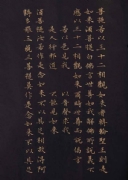 菩提若以三十二相觀如來者轉輪聖王則是
如來須菩提白佛言世尊如我解佛所說義不
應以三十二相觀如來爾時世尊而說偈言
若以色見我 以音聲求我
是人行邪道 不能見如來
須菩提汝若作是念如來不以具足相故得阿
耨多羅三藐三菩提須菩提莫作是念如來不以